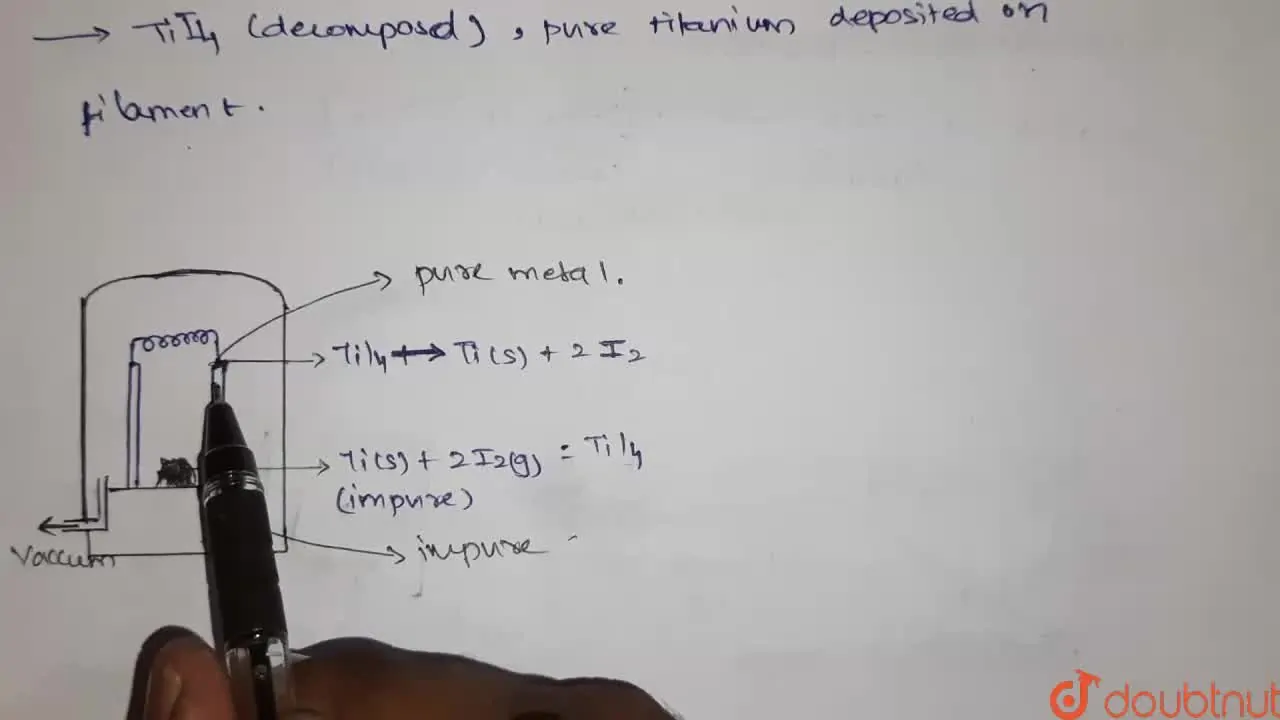 → TiI4 (decomposed), pure titanium deposited on
filament.
pure metal.
TiI4 → Ti(s) + 2 I2
Ti(s) + 2I2(g) = TiI4
(impure)
impure
Vaccum
doubtnut